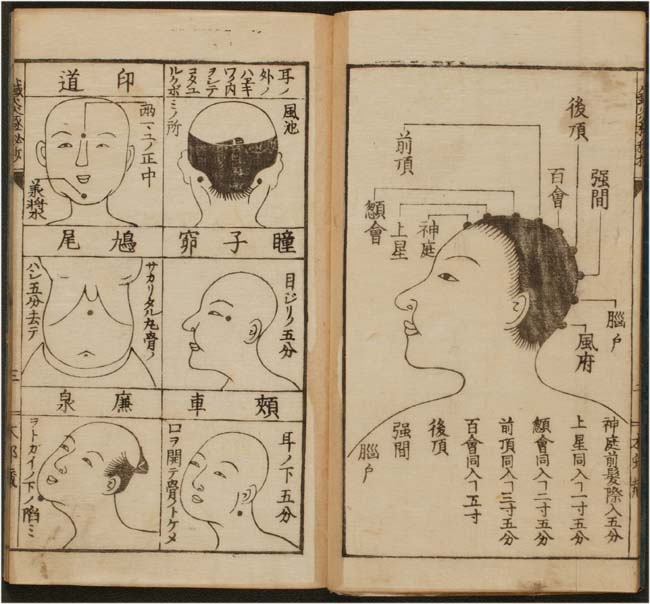 後頂
强間
百會
前頂
顖會
上星
神庭
腦戸
風府
神庭前髪際入五分
上星同入ヿ一寸五分
顖會同入ヿ二寸五分
前頂同入ヿ三寸五分
百會同入ヿ五寸
後頂
强間
腦戸
耳ノ
外ノ
ハエキ
ワノ内
ヲシテ
コタユ
ルクボ
ミノ所
風池
瞳子窌
目ジリノ五分
頰車
耳ノ下五分
口ヲ開テ骨ノトケメ
印道
両マユノ正中
承漿
鳩尾
サカリタル丸骨ノ
ハシ五分去テ
廉泉
ヲトガイノ下ノ陷ミ